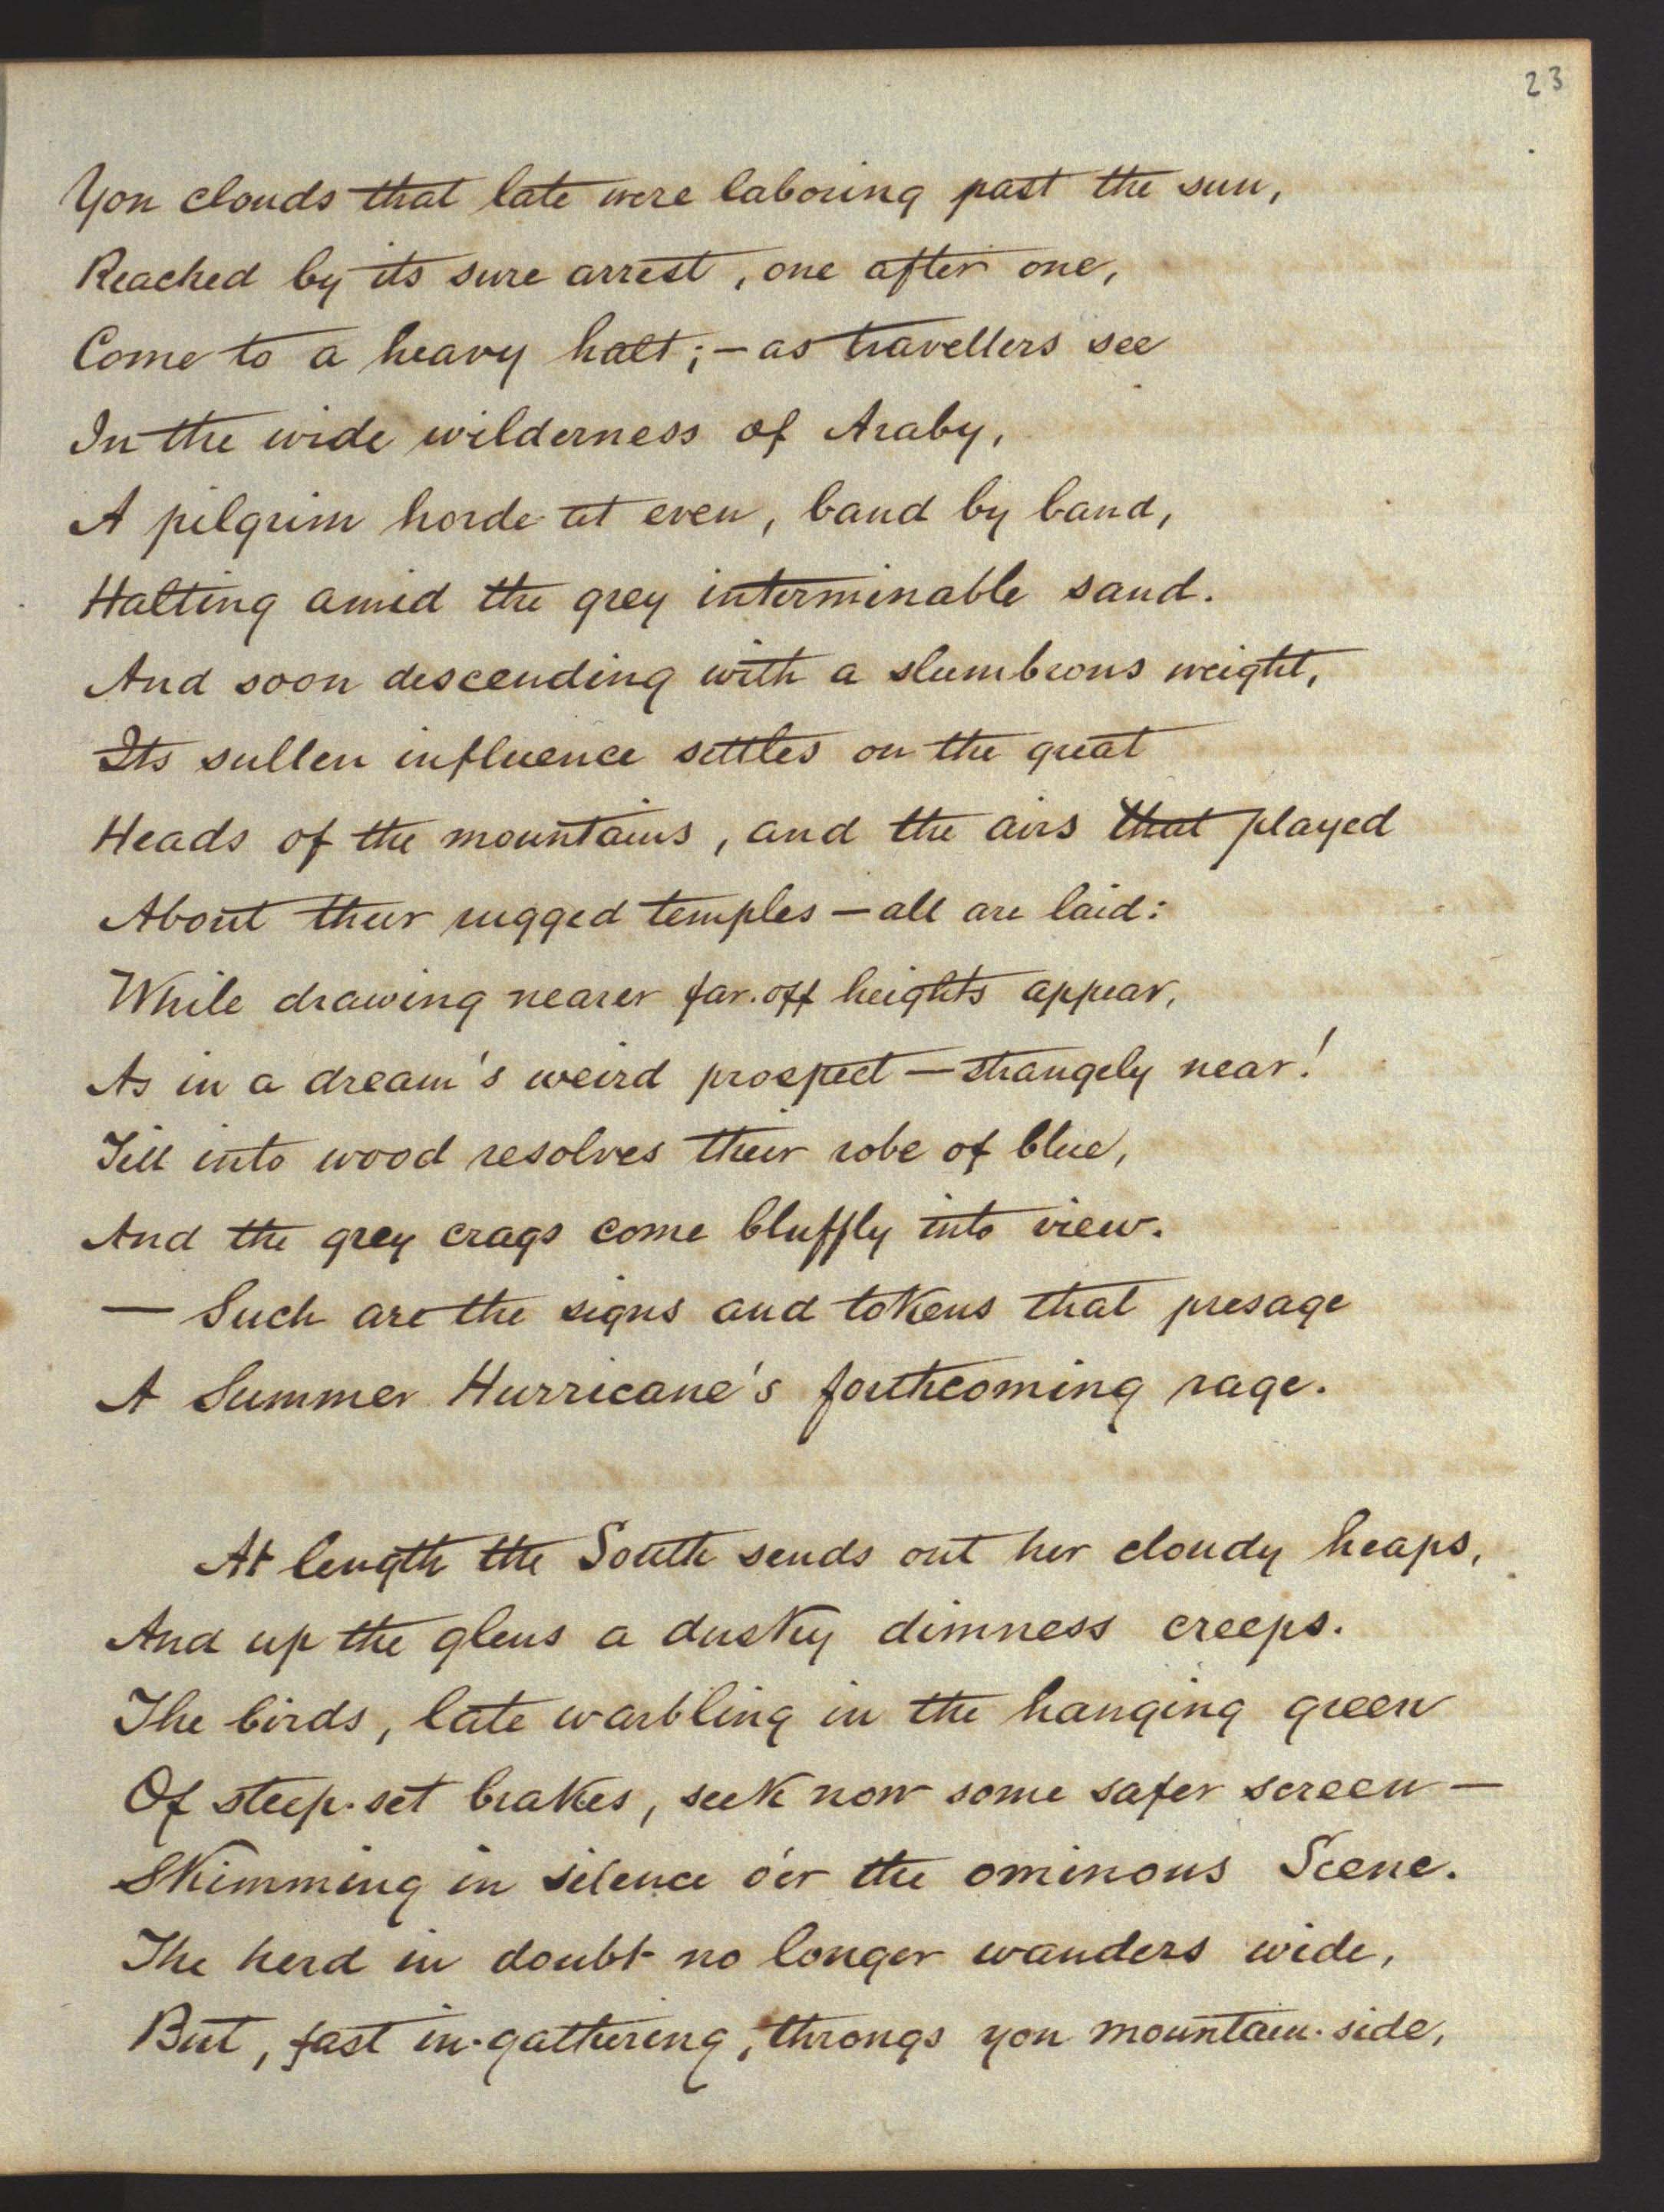 23
Yon clouds that late were laboring past the sun,
Reached by its sure arrest, one after one,
Come to a heavy halt; — as travellers see
In the wide wilderness of Araby,
A pilgrim horde at even, band by band,
Halting amid the grey interminable sand.
And soon descending with a slumbrous weight,
Its sullen influence settles on the great
Heads of the mountains, and the airs that played
About their rugged temples — all are laid:
While drawing nearer far-off heights appear,
As in a dream's weird prospect — strangely near!
Till into wood resolves their robe of blue,
And the grey crags come bluffly into view.
— Such are the signs and tokens that presage
A Summer Hurricane's forthcoming rage.
At length the South sends out her cloudy heaps,
And up the glens a dusky dimness creeps.
The birds, late warbling in the hanging green
Of steep-set brakes, seek now some safer screen —
Skimming in silence o'er the ominous Scene.
The herd in doubt no longer wanders wide,
But, fast in-gathering, throngs yon mountain-side,